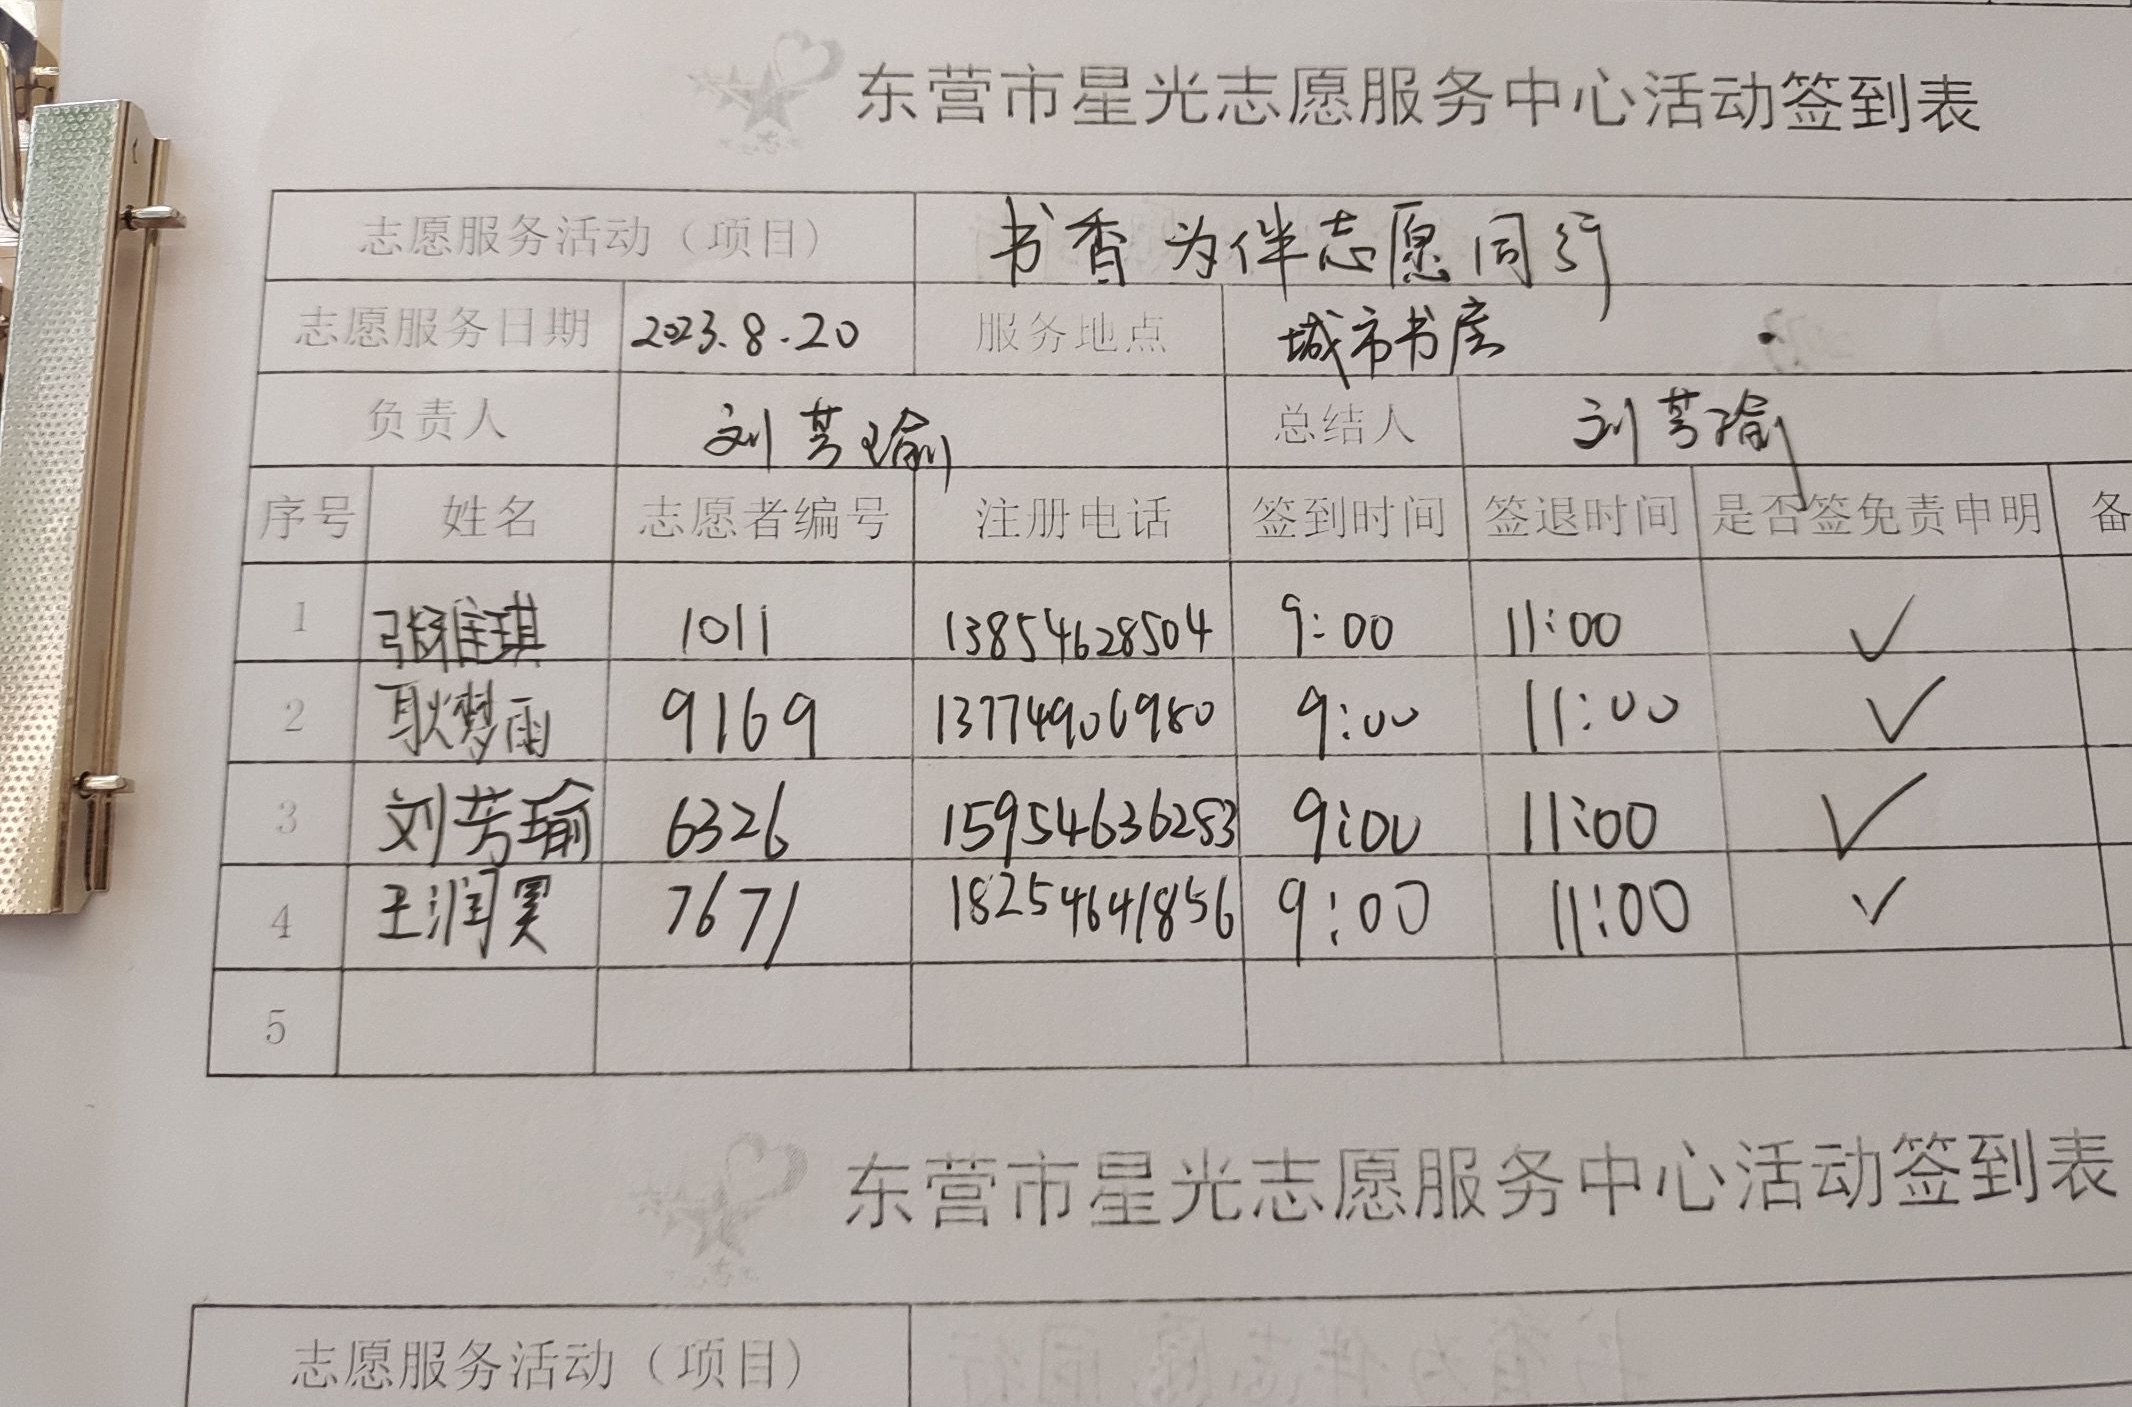 东营市星光志愿服务中心活动签到表
志愿服务活动（项目） 书香为伴志愿同行
志愿服务日期 2023.8.20 服务地点 城市书房
负责人 刘芳瑜 总结人 刘芳瑜
序号 姓名 志愿者编号 注册电话 签到时间 签退时间 是否签免责申明 备
1 张雅琪 1011 13854628504 9:00 11:00 ✓
2 耿梦雨 9169 13774906980 9:00 11:00 ✓
3 刘芳瑜 6326 15954636283 9:00 11:00 ✓
4 王润昊 7671 18254641856 9:00 11:00 ✓
5
东营市星光志愿服务中心活动签到表
志愿服务活动（项目）